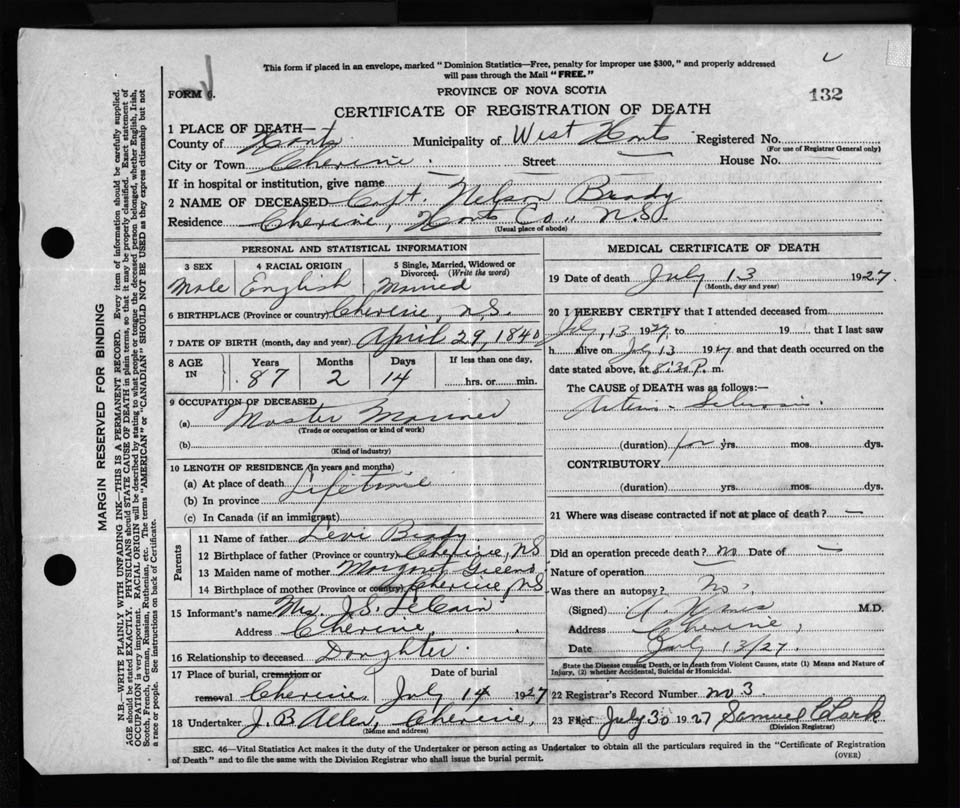 This form if placed in an envelope, marked "Dominion Statistics—Free, penalty for improper use $300," and properly addressed
will pass through the Mail "FREE."
FORM 6.
PROVINCE OF NOVA SCOTIA
132
CERTIFICATE OF REGISTRATION OF DEATH
1 PLACE OF DEATH—
County of Hants Municipality of West Hants Registered No.
(For use of Registrar General only)
City or Town Cheverie Street — House No. —
If in hospital or institution, give name
2 NAME OF DECEASED Capt. Nelson Brady
Residence Cheverie, Hants Co., N.S.
(Usual place of abode)
PERSONAL AND STATISTICAL INFORMATION
3 SEX 4 RACIAL ORIGIN 5 Single, Married, Widowed or
Divorced. (Write the word)
Male English Married
6 BIRTHPLACE (Province or country) Cheverie, N.S.
7 DATE OF BIRTH (month, day and year) April 29, 1840
8 AGE IN Years Months Days If less than one day,
87 2 14 hrs. or min.
9 OCCUPATION OF DECEASED
(a) Master Mariner
(Trade or occupation or kind of work)
(b)
(Kind of industry)
10 LENGTH OF RESIDENCE (in years and months)
(a) At place of death Lifetime
(b) In province
(c) In Canada (if an immigrant)
Parents
11 Name of father Levi Brady
12 Birthplace of father (Province or country) Cheverie, N.S.
13 Maiden name of mother Margaret
14 Birthplace of mother (Province or country) Cheverie, N.S.
15 Informant's name Mrs. J. S. LeCain
Address Cheverie,
16 Relationship to deceased Daughter
17 Place of burial, cremation or Date of burial
removal Cheverie July 14 1927
18 Undertaker J. B. Allen, Cheverie,
(Name and address)
MEDICAL CERTIFICATE OF DEATH
19 Date of death July 13 1927.
(Month, day and year)
20 I HEREBY CERTIFY that I attended deceased from
13 1927, to 19 that I last saw
h alive on July 13 1927 and that death occurred on
date stated above, at 8:30 P. m.
The CAUSE of DEATH was as follows:—
Sclerosis.
(duration) for yrs. mos. dys.
CONTRIBUTORY
(duration) yrs. mos. dys.
21 Where was disease contracted if not at place of death? —
Did an operation precede death? no Date of —
Nature of operation —
Was there an autopsy? No.
(Signed) M.D.
Address Cheverie,
Date July 13/27.
State the Disease causing Death, or in death from Violent Causes, state (1) Means and Nature of
Injury, (2) whether Accidental, Suicidal or Homicidal.
22 Registrar's Record Number no 3.
23 Filed July 30 1927 Samuel Clark
(Division Registrar)
SEC. 46—Vital Statistics Act makes it the duty of the Undertaker or person acting as Undertaker to obtain all the particulars required in the "Certificate of Registration
of Death" and to file the same with the Division Registrar who shall issue the burial permit.
(OVER)
MARGIN RESERVED FOR BINDING
N.B.—WRITE PLAINLY WITH UNFADING INK—THIS IS A PERMANENT RECORD. Every item of information should be carefully supplied.
AGE should be stated EXACTLY. PHYSICIANS should STATE CAUSE OF DEATH in plain terms, so that it may be properly classified. Exact statement of
OCCUPATION is very important. RACIAL ORIGIN will be described by stating to what people or tongue the deceased person belonged, whether English, Irish,
Scotch, French, German, Russian, Ruthenian, etc. The terms "AMERICAN" or "CANADIAN" SHOULD NOT BE USED as they express citizenship but not
a race or people. See instructions on back of Certificate.